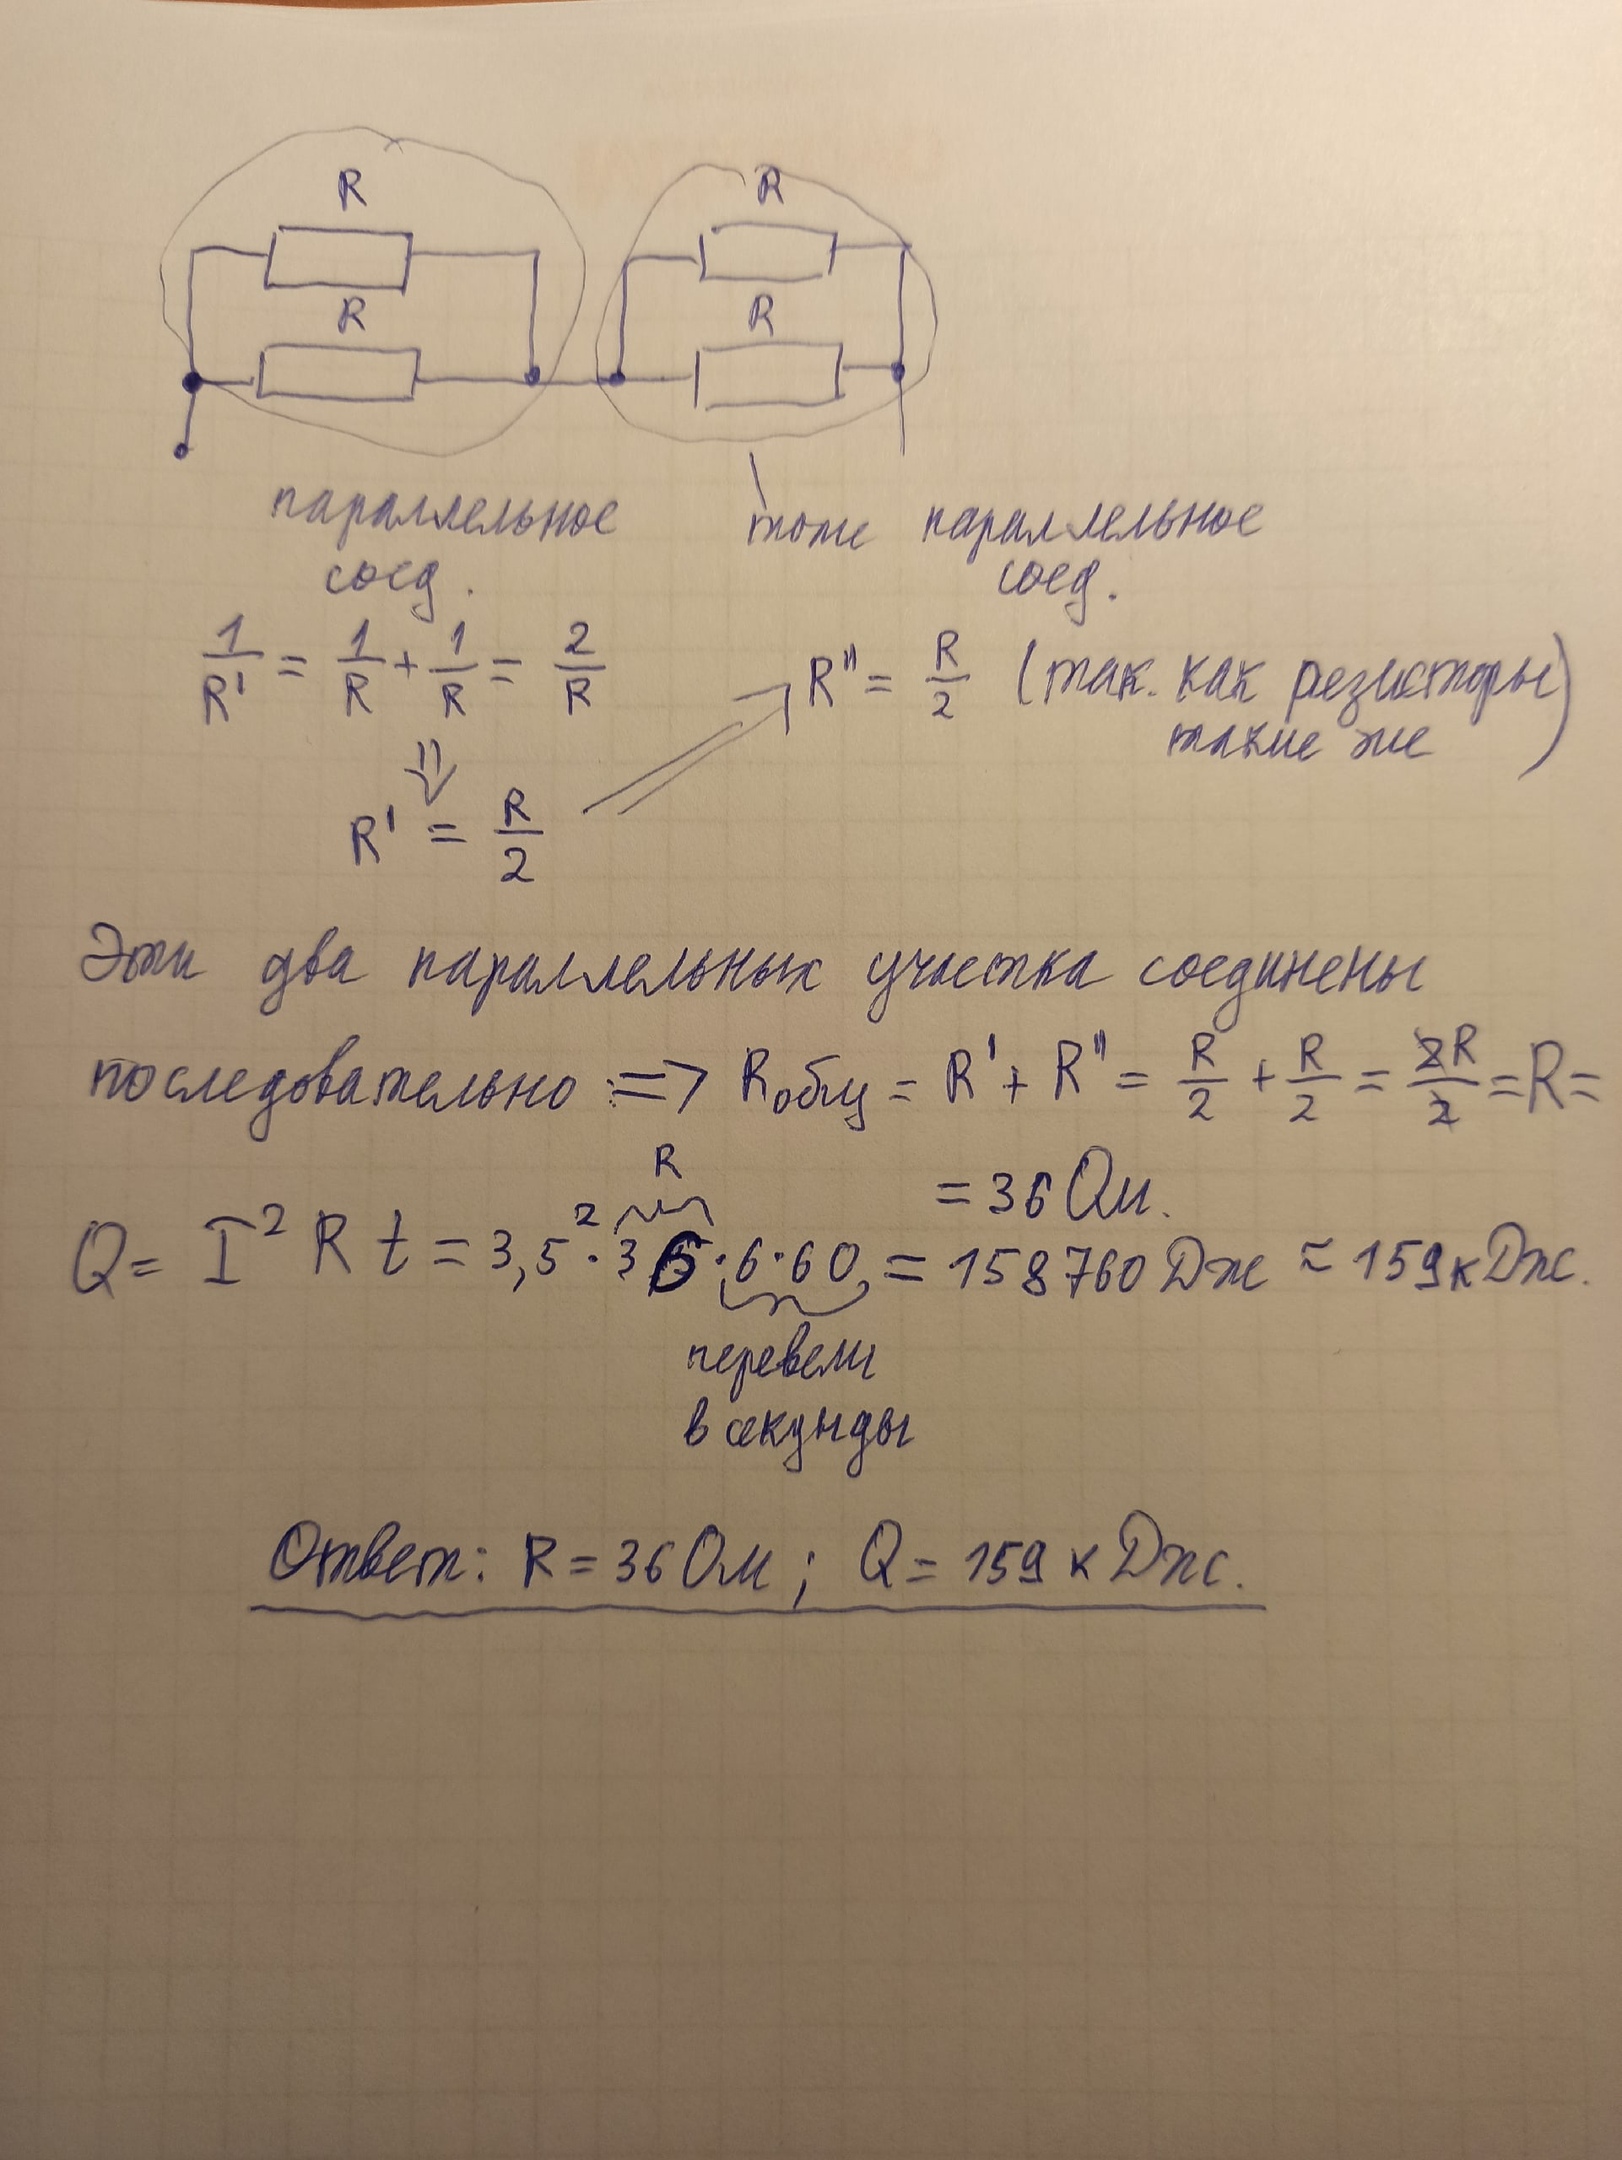 R R
R R
параллельное тоже параллельное
соед. соед.
1/R' = 1/R + 1/R = 2/R
R'' = R/2 (так. как резисторы
такие же)
⇓
R' = R/2
Эти два параллельных участка соединены
последовательно => Rобщ = R' + R'' = R/2 + R/2 = 2R/2 = R =
= 36 Ом.
R
Q = I² R t = 3,5² · 36 · 6 · 60 = 158760 Дж ≈ 159 кДж.
перевели
в секунды
Ответ: R = 36 Ом ; Q = 159 кДж.